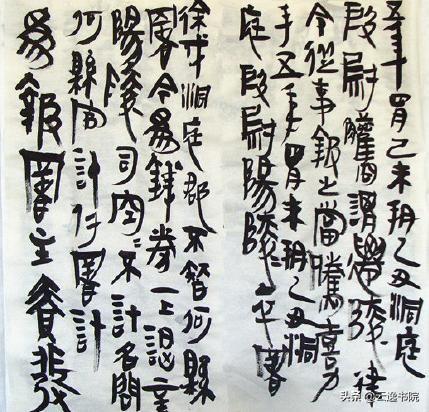 五年四月己未朔乙丑洞庭
叚尉觿謂遷陵律
令從事報之當騰嘉
手五年四月未朔乙丑洞
庭叚尉陽陵卒署
洞庭郡不智何縣
署令為錢券一上謁言
陽陵司空〻不計名問
何縣官計付署計
為報署主責發
头条 @云逸书院